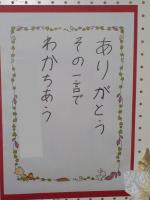 ありがとう
その一言で
わかちあう